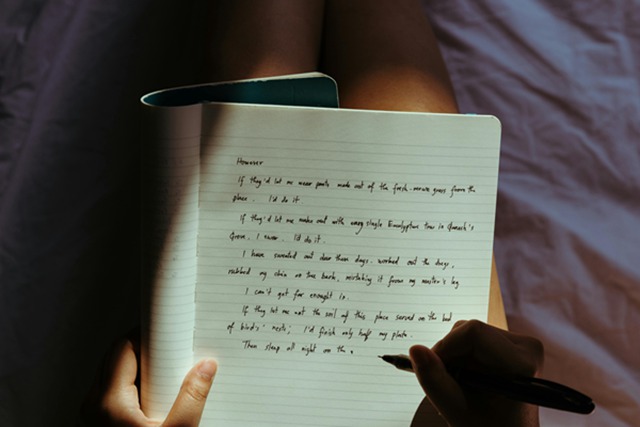 However
If they'd let me wear pants made out of the fresh-mown grass from the
place. I'd do it
If they'd let me make out with every single Eucalyptus tree in
Grove. I swear. I'd do it.
I have sweated out over them days. worked out the dregs,
rubbed my chin on the bark, mistaking it from my master's leg
I can't get far enough in.
If they let me eat the soil of this place served on the bed
of birds' nests; I'd finish only half my plate.
Then sleep all night on the